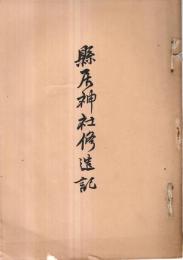 縣居神社修造記